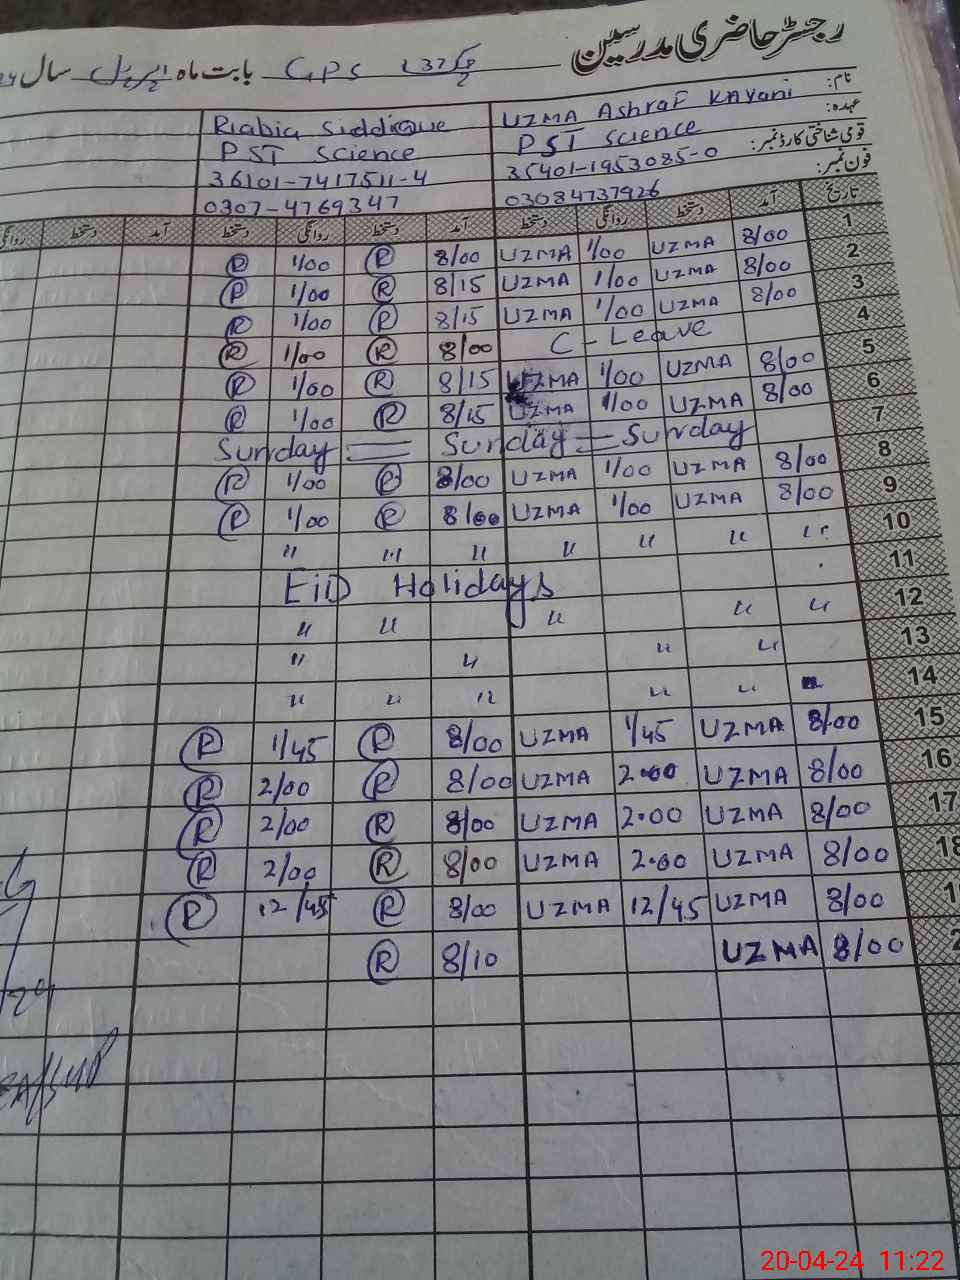 رجسٹر حاضری مدرسین
GPS چک 137 بابت ماہ اپریل سال
نام: UZMA Ashraf Kayani Rabia Siddique
عہدہ: PST Science PST Science
قومی شناختی کارڈ نمبر: 35401-1953085-0 36101-7417511-4
فون نمبر: 03084737926 0307-4769347
تاریخ آمد دستخط روانگی دستخط آمد دستخط روانگی دستخط آمد دستخط روانگی
1 8/00 UZMA 1/00 UZMA 8/00 R 1/00 R
2 8/00 UZMA 1/00 UZMA 8/15 R 1/00 R
3 8/00 UZMA 1/00 UZMA 8/15 R 1/00 R
4 C-Leave 8/00 R 1/00 R
5 8/00 UZMA 1/00 UZMA 8/15 R 1/00 R
6 8/00 UZMA 1/00 UZMA 8/15 R 1/00 R
7 Sunday = Sunday = Sunday
8 8/00 UZMA 1/00 UZMA 8/00 R 1/00 R
9 8/00 UZMA 1/00 UZMA 8/00 R 1/00 R
10 " " " " " " "
11 EiD Holidays
12 " " " " "
13 " " " "
14 " " " " "
15 8/00 UZMA 1/45 UZMA 8/00 R 1/45 R
16 8/00 UZMA 2.00 UZMA 8/00 R 2/00 R
17 8/00 UZMA 2.00 UZMA 8/00 R 2/00 R
18 8/00 UZMA 2.00 UZMA 8/00 R 2/00 R
8/00 UZMA 12/45 UZMA 8/00 R 12/45 R
8/00 UZMA 8/10 R
20-04-24 11:22